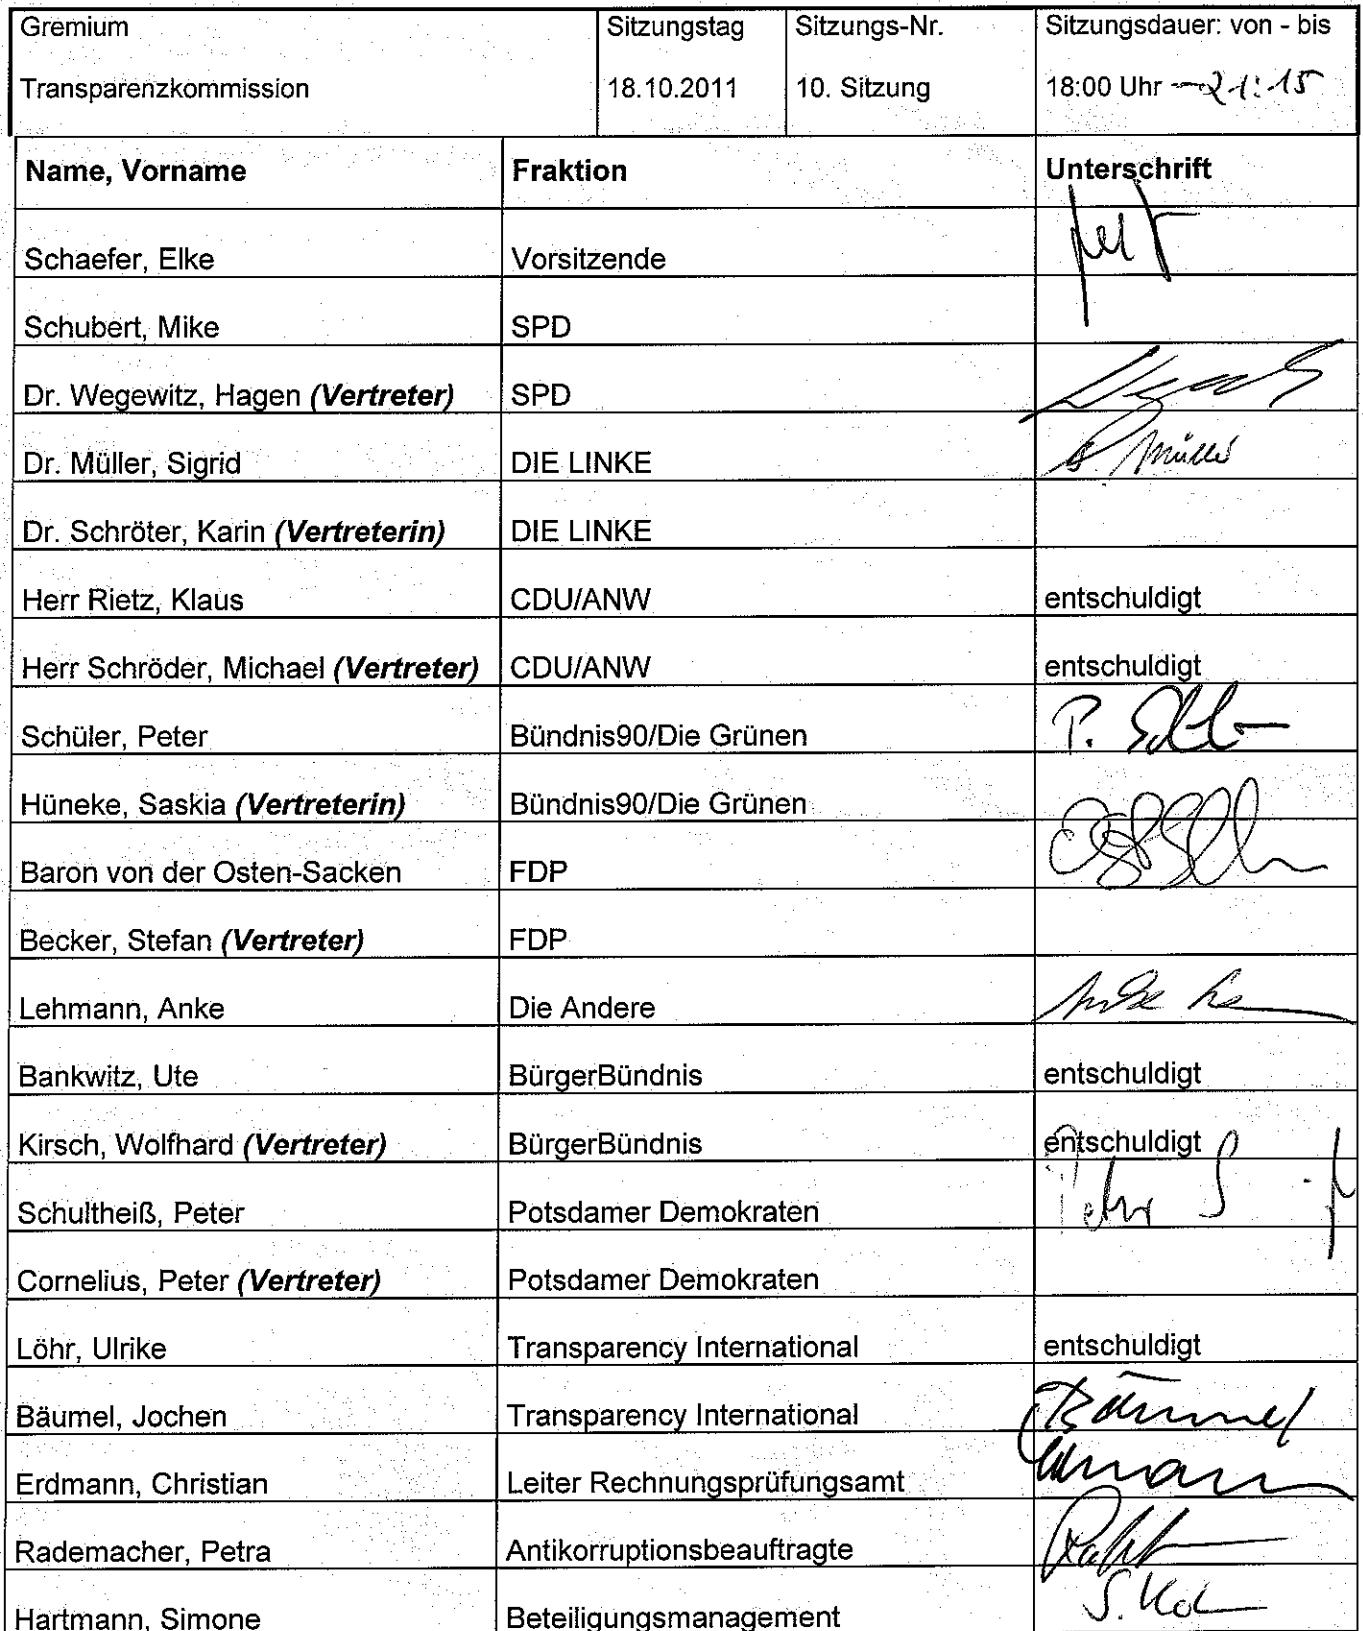 Gremium Sitzungstag Sitzungs-Nr. Sitzungsdauer: von - bis
Transparenzkommission 18.10.2011 10. Sitzung 18:00 Uhr - 21:15
Name, Vorname Fraktion Unterschrift
Schaefer, Elke Vorsitzende
Schubert, Mike SPD
Dr. Wegewitz, Hagen (Vertreter) SPD
Dr. Müller, Sigrid DIE LINKE S. Müller
Dr. Schröter, Karin (Vertreterin) DIE LINKE
Herr Rietz, Klaus CDU/ANW entschuldigt
Herr Schröder, Michael (Vertreter) CDU/ANW entschuldigt
Schüler, Peter Bündnis90/Die Grünen P.
Hüneke, Saskia (Vertreterin) Bündnis90/Die Grünen
Baron von der Osten-Sacken FDP
Becker, Stefan (Vertreter) FDP
Lehmann, Anke Die Andere Anke
Bankwitz, Ute BürgerBündnis entschuldigt
Kirsch, Wolfhard (Vertreter) BürgerBündnis entschuldigt
Schultheiß, Peter Potsdamer Demokraten Peter S
Cornelius, Peter (Vertreter) Potsdamer Demokraten
Löhr, Ulrike Transparency International entschuldigt
Bäumel, Jochen Transparency International Bäumel
Erdmann, Christian Leiter Rechnungsprüfungsamt
Rademacher, Petra Antikorruptionsbeauftragte
Hartmann, Simone Beteiligungsmanagement S.